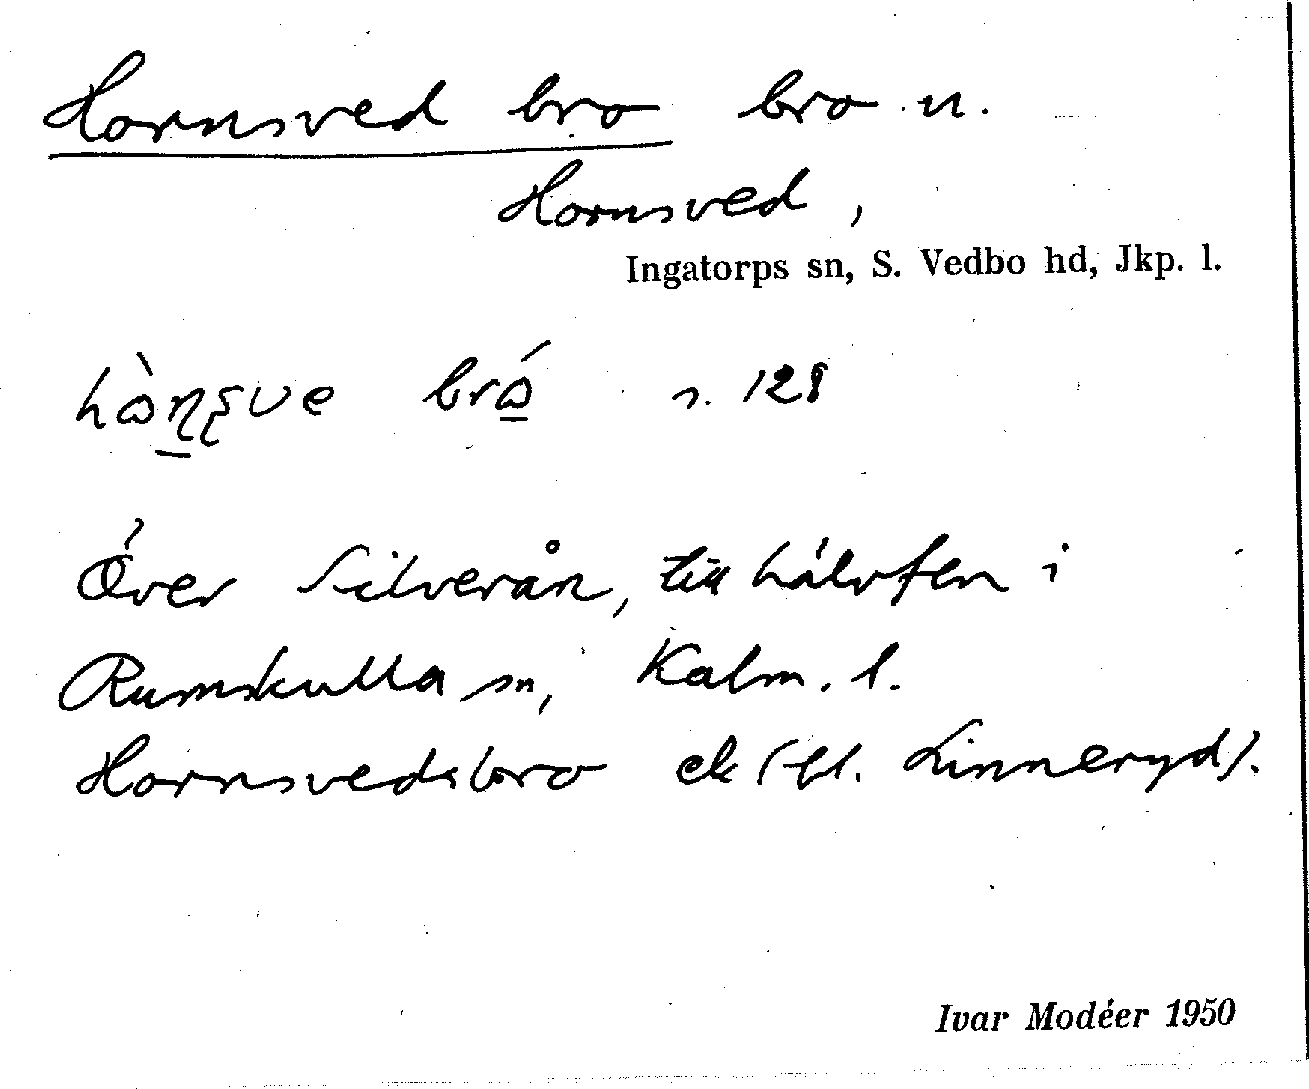 Hornsved bro bro n.
Hornsved,
Ingatorps sn, S. Vedbo hd, Jkp. l.
bró s. 128
Över Silverån, till hälvten i
Rumskulla sn, Kalm. l.
Hornsvedsbro ek (bl. Linneryd).
Ivar Modéer 1950